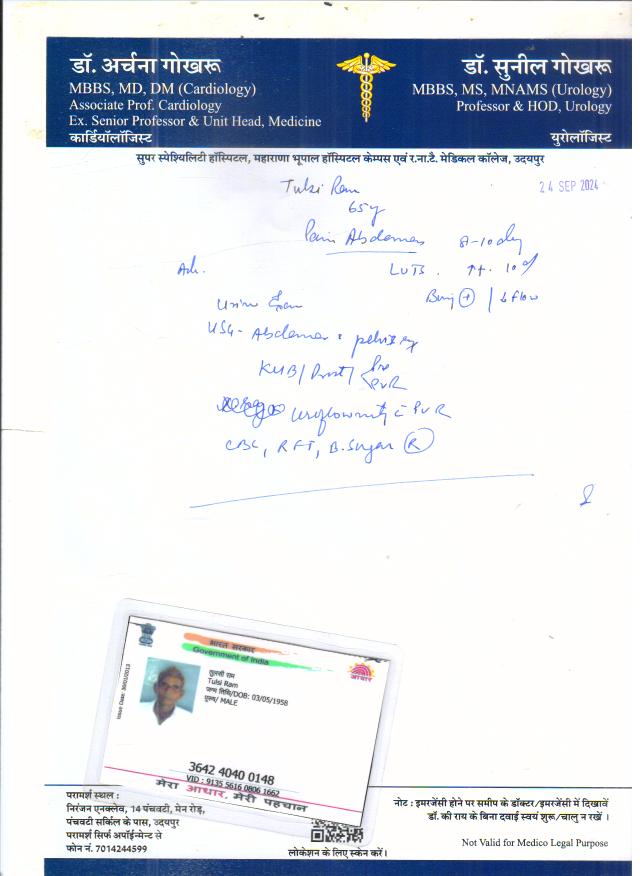 डॉ. अर्चना गोखरू
MBBS, MD, DM (Cardiology)
Associate Prof. Cardiology
Ex. Senior Professor & Unit Head, Medicine
कार्डियॉलॉजिस्ट
डॉ. सुनील गोखरू
MBBS, MS, MNAMS (Urology)
Professor & HOD, Urology
युरोलॉजिस्ट
सुपर स्पेश्यिलिटी हॉस्पिटल, महाराणा भूपाल हॉस्पिटल केम्पस एवं र.ना.टै. मेडिकल कॉलेज, उदयपुर
24 SEP 2024
Tulsi Ram
65y
Pain Abdomen 8-10 day
LUTS
Adv.
Urine Exam
USG- Abdomen & pelvis
KUB/Prost/ Pre
PVR
Uroflowmetry c PVR
CBC, RFT, B.Sugar (R)
भारत सरकार
Government of India
तुलसी राम
Tulsi Ram
जन्म तिथि/DOB: 03/05/1958
पुरुष/ MALE
आधार
3642 4040 0148
VID : 9135 5616 0806 1662
मेरा आधार, मेरी पहचान
परामर्श स्थल :
निरंजन एनक्लेव, 14 पंचवटी, मेन रोड़,
पंचवटी सर्किल के पास, उदयपुर
परामर्श सिर्फ अपॉईन्मेन्ट से
फोन नं. 7014244599
लोकेशन के लिए स्केन करें।
नोट : इमरजेंसी होने पर समीप के डॉक्टर/इमरजेंसी में दिखावें
डॉ. की राय के बिना दवाई स्वयं शुरू/चालु न रखें ।
Not Valid for Medico Legal Purpose